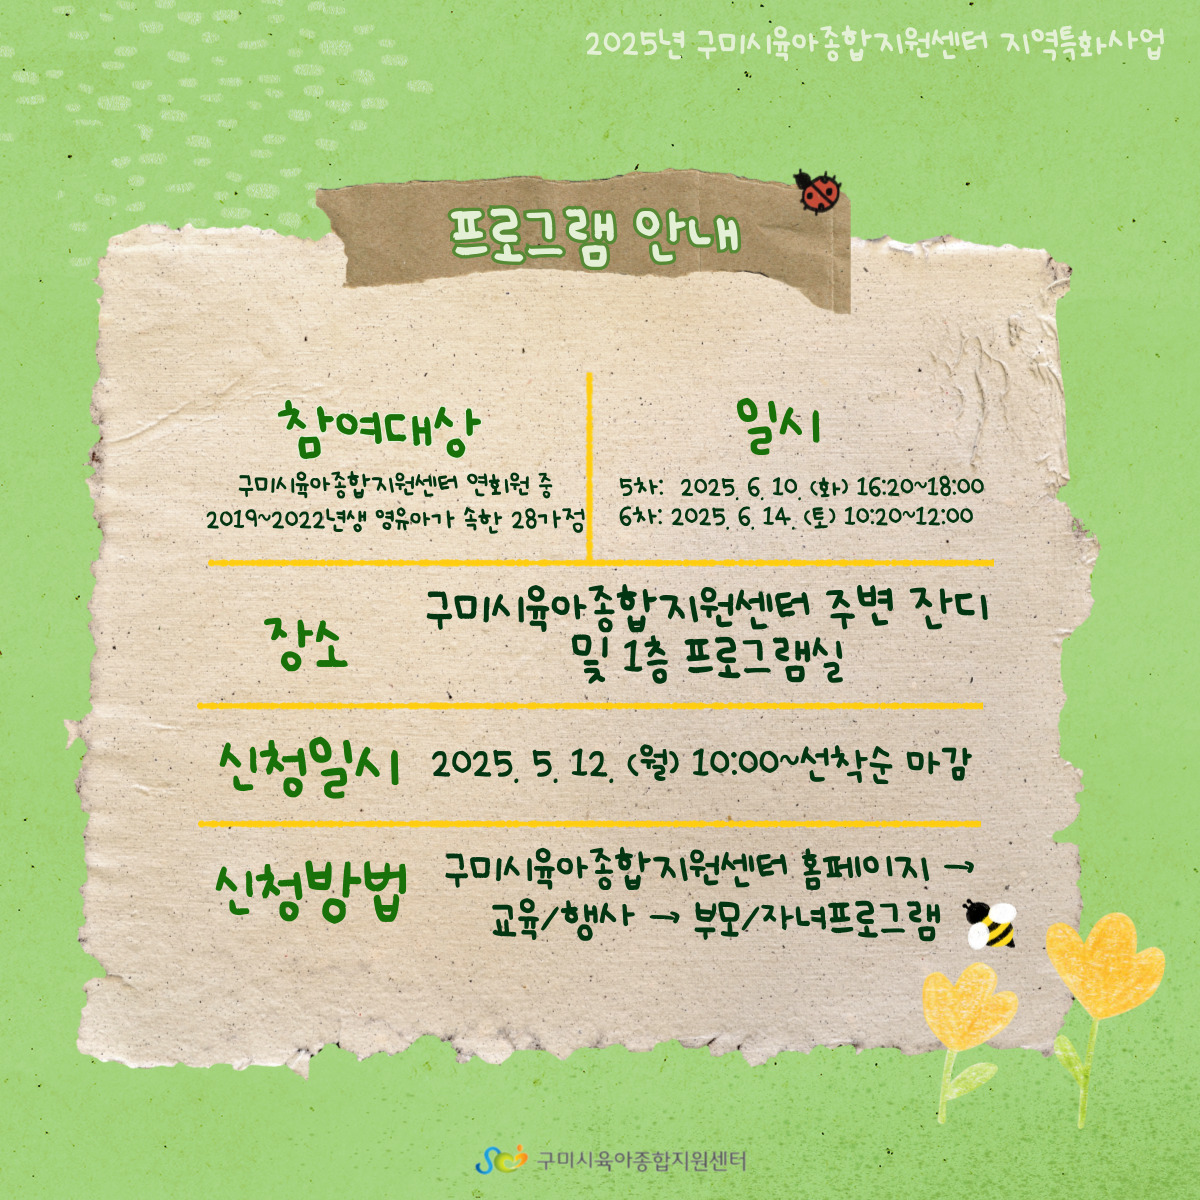 2025년 구미시육아종합지원센터 지역특화사업
프로그램 안내
참여대상
구미시육아종합지원센터 연회원 중
2019~2022년생 영유아가 속한 28가정
일시
5차: 2025. 6. 10. (화) 16:20~18:00
6차: 2025. 6. 14. (토) 10:20~12:00
장소
구미시육아종합지원센터 주변 잔디
및 1층 프로그램실
신청일시
2025. 5. 12. (월) 10:00~선착순 마감
신청방법
구미시육아종합지원센터 홈페이지 →
교육/행사 → 부모/자녀프로그램
구미시육아종합지원센터